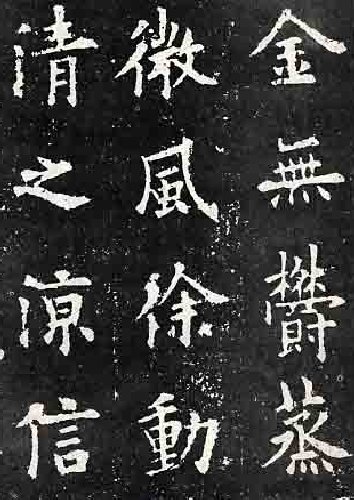 金無欝蒸
微風徐動
清之涼信